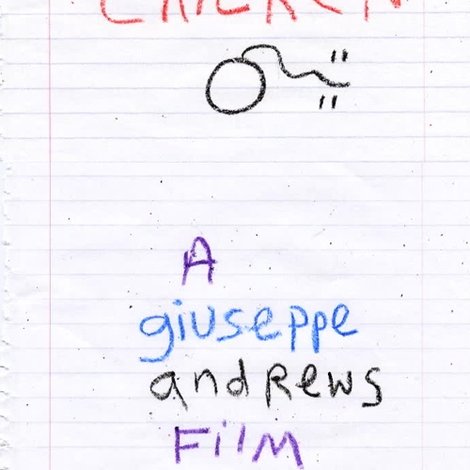 CHICKEN
A
giuseppe
andRews
FilM